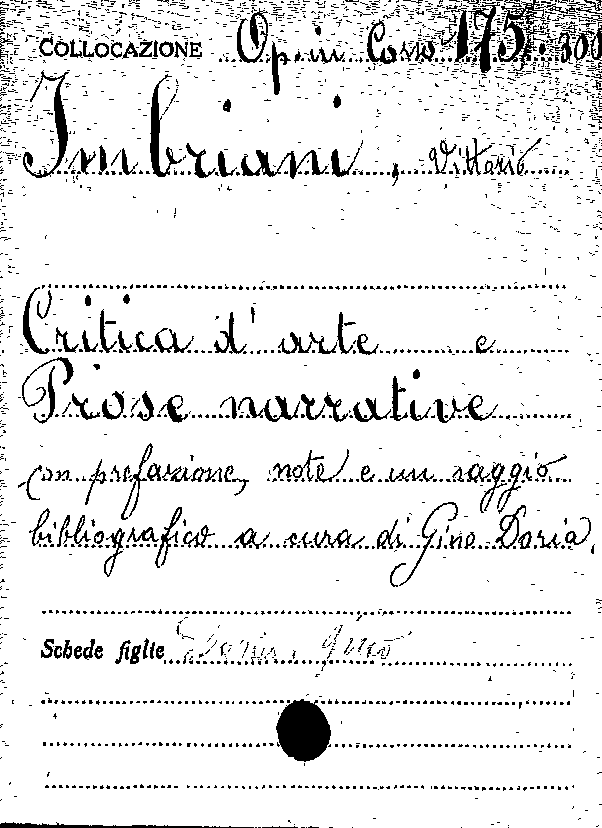 COLLOCAZIONE Op. in Corso 175. 300
Imbriani, Vittorio
Critica d'arte e
Prose narrative
con prefazione, note e un saggio
bibliografico a cura di Gino Doria.
Schede figlie Doria, Gino